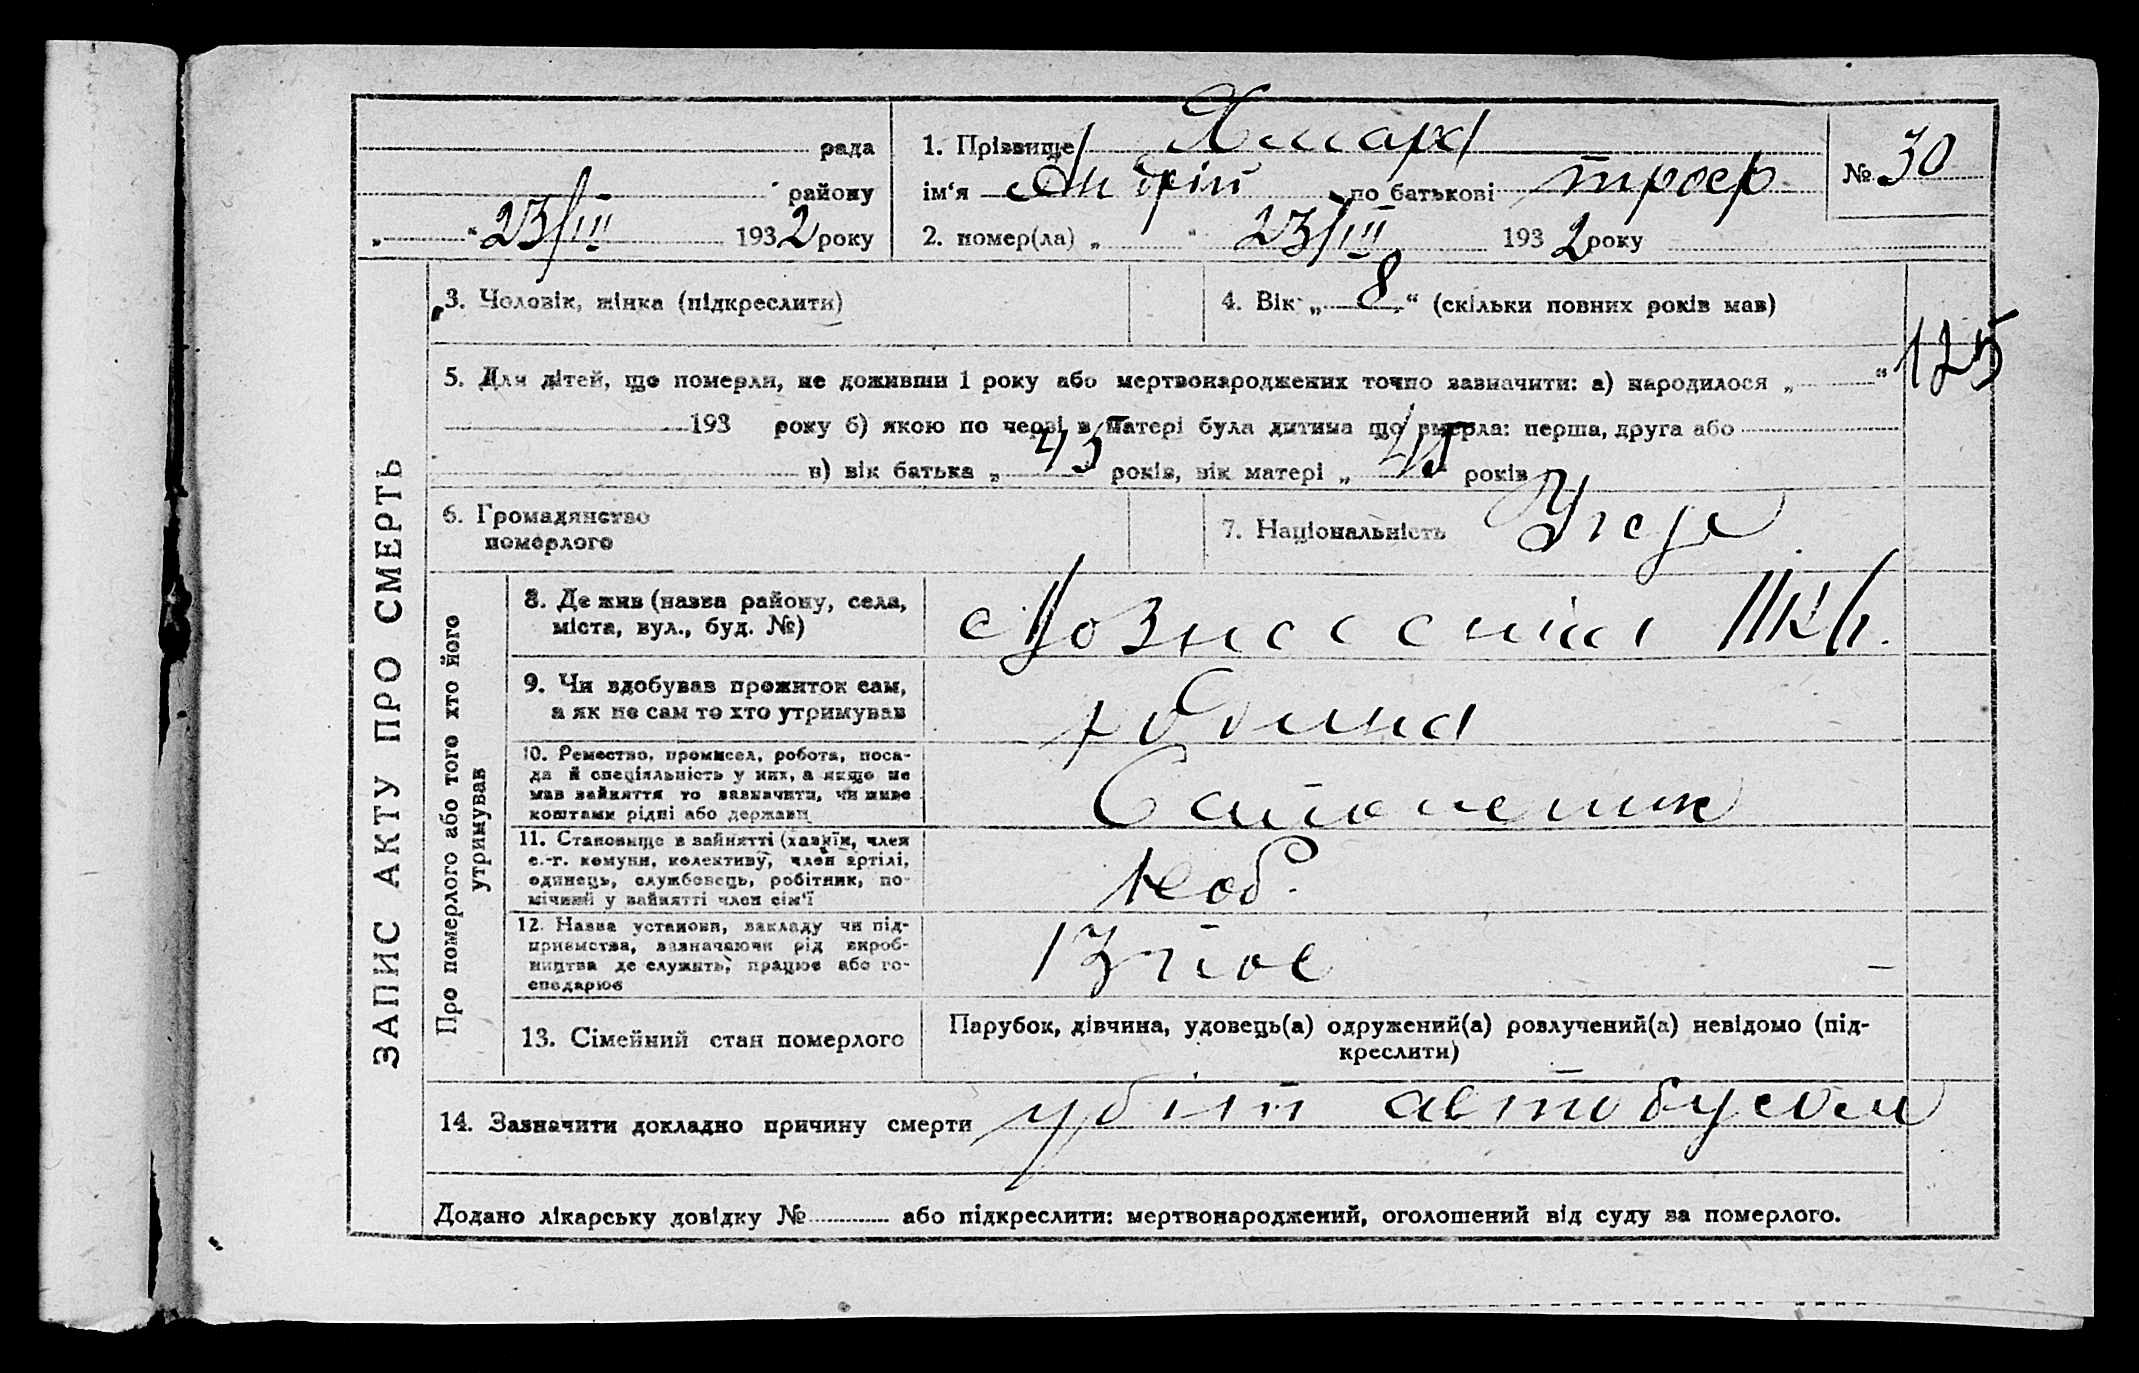 рада
району
„ “ 23/III 1932 року
1. Прізвище Хмара
ім‘я Андрій по батькові
№ 30
2. помер(ла) „ “ 23/III 1932 року
ЗАПИС АКТУ ПРО СМЕРТЬ
3. Чоловік, жінка (підкреслити)
4. Вік „ 8 “ (скільки повних років мав)
5. Для дітей, що померли, не доживши 1 року або мертвонароджених точно зазначити: а) народилося „ “
125
193 року б) якою по черзі в матері була дитина що вмерла: перша, друга або
в) вік батька „ 43 років, вік матері „ років
6. Громадянство
померлого
7. Національність
Про померлого або того хто його
утримував
8. Де жив (назва району, села,
міста, вул., буд. №)
9. Чи здобував прожиток сам,
а як не сам то хто утримував
родина
10. Ремество, промисел, робота, поса-
да й спеціяльність у них, а якщо не
мав зайняття то зазначити, чи живе
коштами рідні або держави
11. Становище в зайнятті (хазяїн, член
с.-г. комуни, колективу, член артілі,
одинець, службовець, робітник, по-
мічний у зайнятті член сім'ї
12. Назва установи, закладу чи під-
приємства, зазначаючи рід вироб-
ництва де служить, працює або го-
сподарює
13. Сімейний стан померлого
Парубок, дівчина, удовець(а) одружений(а) розлучений(а) невідомо (під-
креслити)
14. Зазначити докладно причину смерти убит автобусом
Додано лікарську довідку № або підкреслити: мертвонароджений, оголошений від суду за померлого.